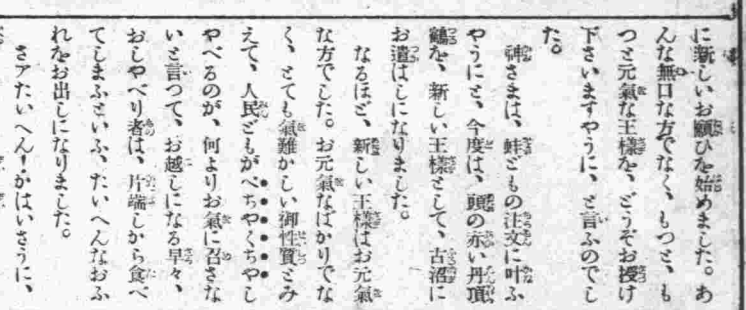 に新しいお願ひを始めました。あ
んな無口な方でなく、もつと、も
つと元氣な王樣を、どうぞお授け
下さいますやうに、と言ふのでし
た。
神さまは、蛙どもの注文に叶ふ
やうにと、今度は、頭の赤い丹頂
鶴を、新しい王樣として、古沼に
お遣はしになりました。
なるほど、新しい王樣はお元氣
な方でした。お元氣なばかりでな
く、とても氣難かしい御性質とみ
えて、人民どもがべちやくちやし
やべるのが、何よりお氣に召さな
いと言つて、お越しになる早々、
おしやべり者は、片端しから食べ
てしまふといふ、たいへんなおふ
れをお出しになりました。
さアたいへん！かはいさうに、